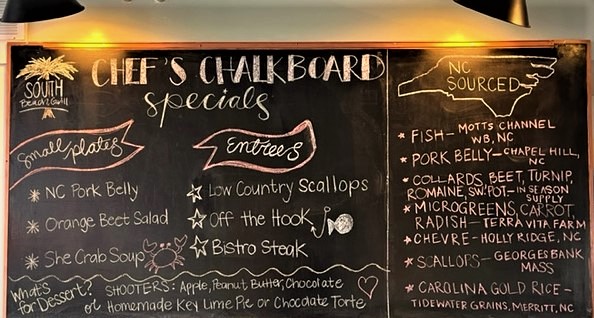 SOUTH
Beach Grill
CHEF'S CHALKBOARD
specials
Small plates
NC Pork Belly
Orange Beet Salad
She Crab Soup
Entrees
Low Country Scallops
Off the Hook
Bistro Steak
What's
for Dessert?
SHOOTERS: Apple, Peanut Butter, Chocolate
or Homemade Key Lime Pie or Chocolate Torte
NC
SOURCED
FISH— MOTTS CHANNEL
WB, NC
PORK BELLY— CHAPEL HILL,
NC
COLLARDS, BEET, TURNIP,
ROMAINE, SW.POT- IN SEASON
SUPPLY
MICROGREENS, CARROT,
RADISH— TERRA VITA FARM
CHEVRE- HOLLY RIDGE, NC
SCALLOPS— GEORGES BANK
MASS
CAROLINA GOLD RICE—
TIDEWATER GRAINS, MERRITT, NC